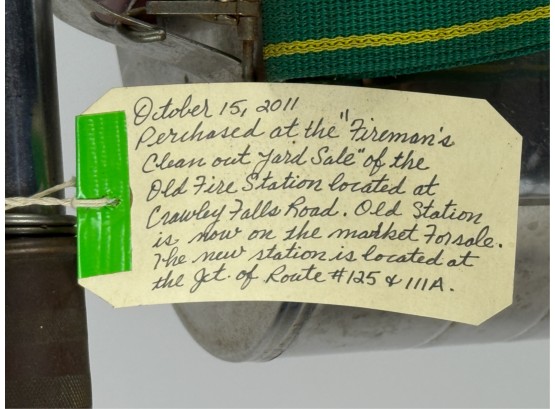 October 15, 2011
Perchased at the "Fireman's
Clean out Yard Sale" of the
Old Fire Station located at
Crawley Falls Road. Old Station
is now on the market For sale.
The new station is located at
the Jct. of Route #125 & 111A.